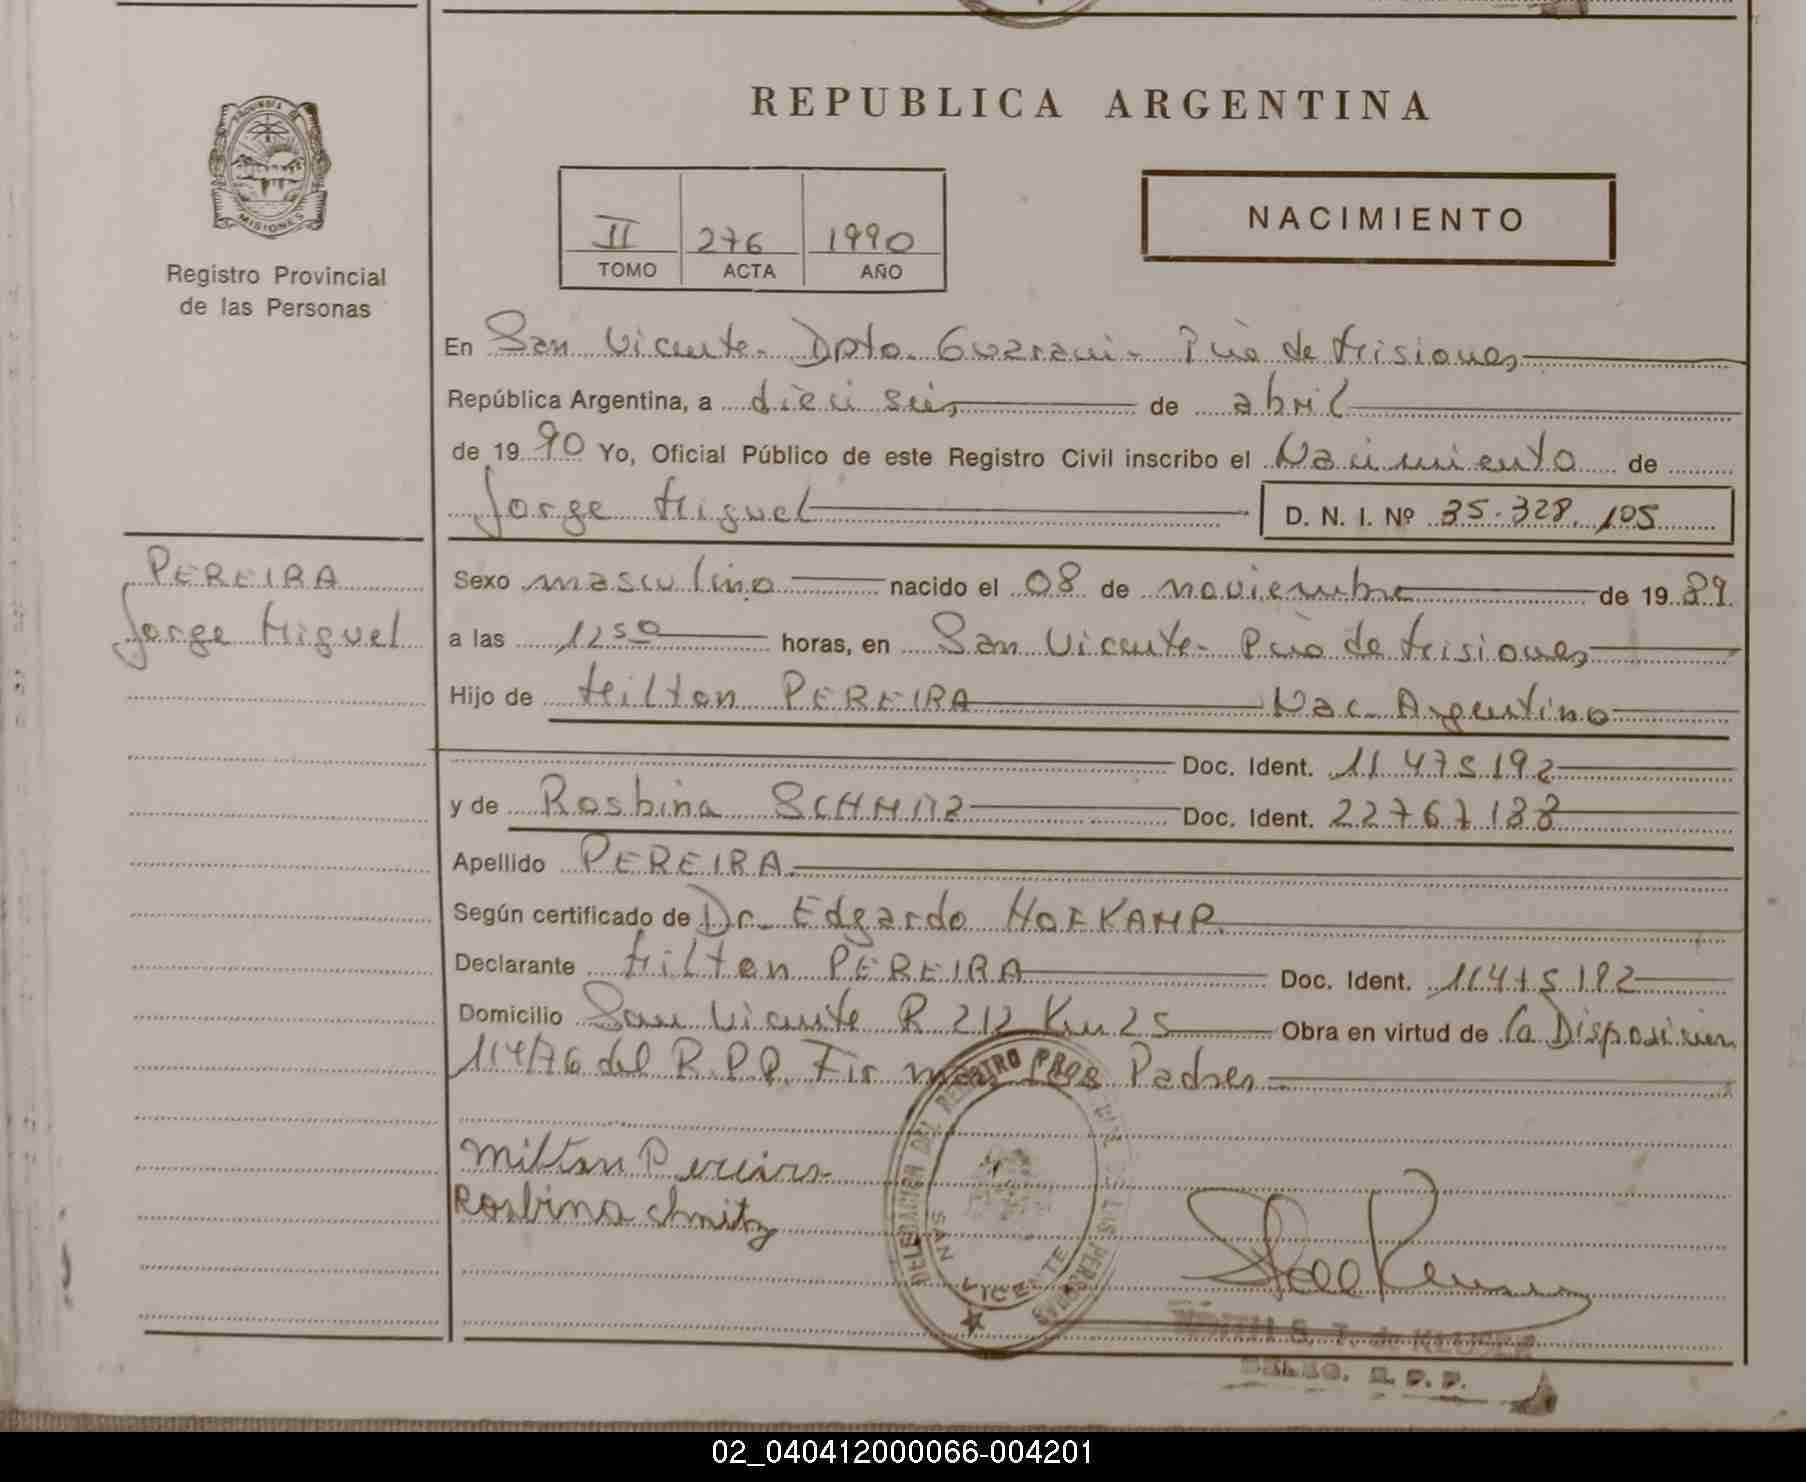 REPUBLICA ARGENTINA
PROVINCIA DE
MISIONES
Registro Provincial
de las Personas
II 276 1990
TOMO ACTA AÑO
NACIMIENTO
En San Vicente - Dpto. Guarani - Pcia de Misiones
República Argentina, a dieciseis de abril
de 1990 Yo, Oficial Público de este Registro Civil inscribo el Nacimiento de
Jorge Miguel D. N. I. Nº 35.328.105
PEREIRA
Jorge Miguel
Sexo masculino nacido el 08 de noviembre de 1989
a las 12 50 horas, en San Vicente - Pcia de Misiones
Hijo de Milton PEREIRA Nac. Argentino
Doc. Ident. 11475192
y de Rosbina SCHMITZ Doc. Ident. 22767188
Apellido PEREIRA
Según certificado de Dr. Edgardo HOFKAMP
Declarante Milton PEREIRA Doc. Ident. 11475192
Domicilio San Vicente R 212 Km 25 Obra en virtud de la Disposición
114/76 del R.P.P. Firman los Padres
Milton Pereira
Rosbina chmitz
DELEGACION DEL REGISTRO PROVINCIAL DE LAS PERSONAS
SAN VICENTE
R. P. P.
02_040412000066-004201